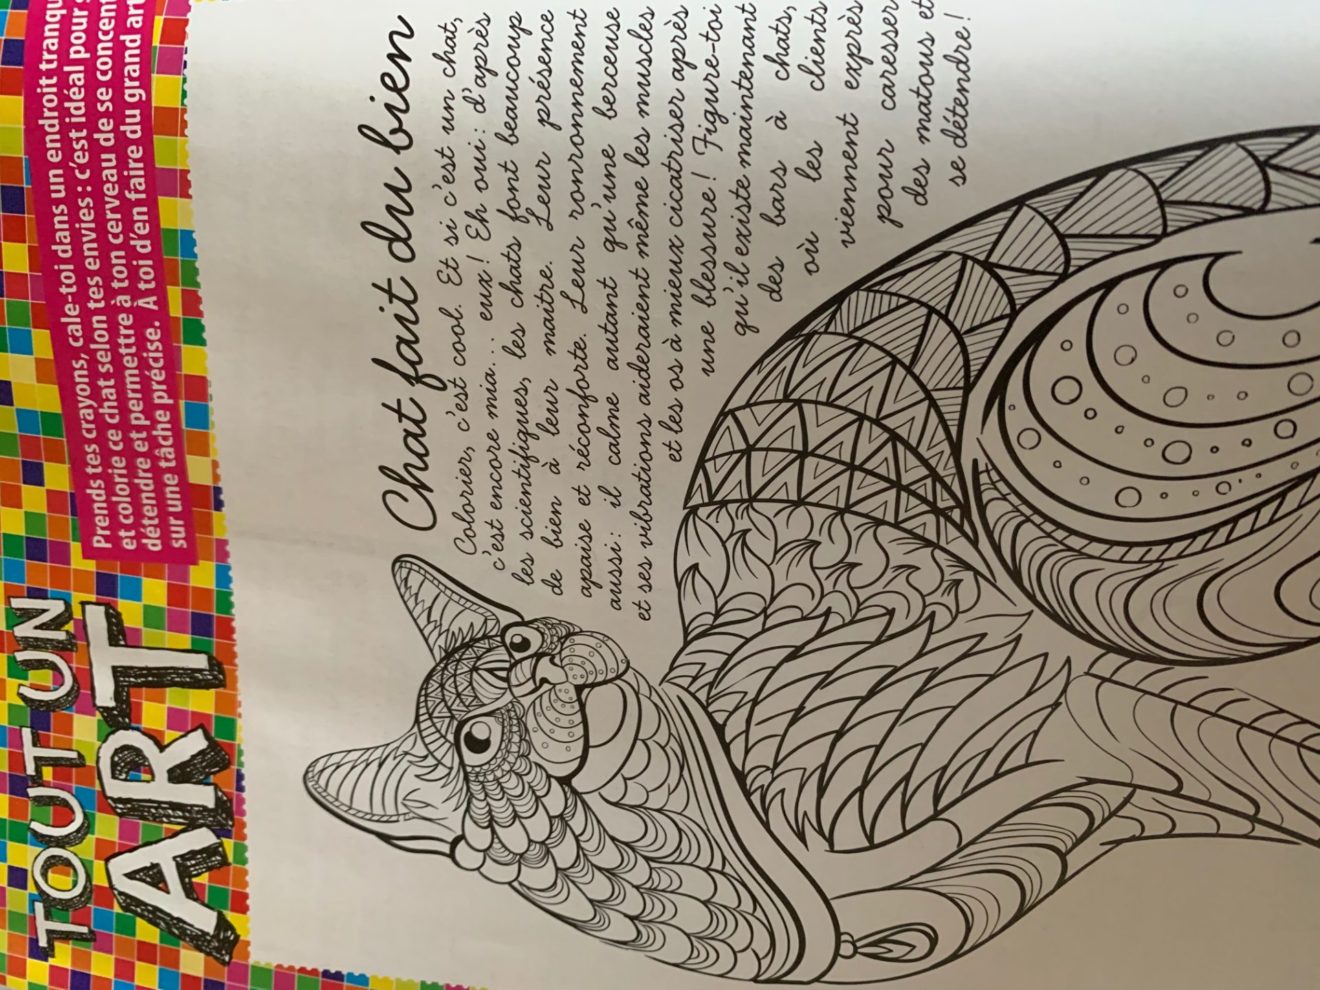 TOUT UN
ART
Prends tes crayons, cale-toi dans un endroit
et colorie ce chat selon tes envies : c'est idéal pour
détendre et permettre à ton cerveau de se
sur une tâche précise. À toi d'en faire du grand
Chat fait du bien
Colorier, c'est cool. Et si c'est un chat,
c'est encore mia... eux ! Eh oui : d'après
les scientifiques, les chats font beaucoup
de bien à leur maitre. Leur présence
apaise et réconforte. Leur ronronnement
aussi : il calme autant qu'une berceuse
et ses vibrations aideraient même les muscles
et les os à mieux cicatriser après
une blessure ! Figure-toi
qu'il existe maintenant
des bars à chats,
où les clients
viennent exprès
pour caresser
des matous et
se détendre !